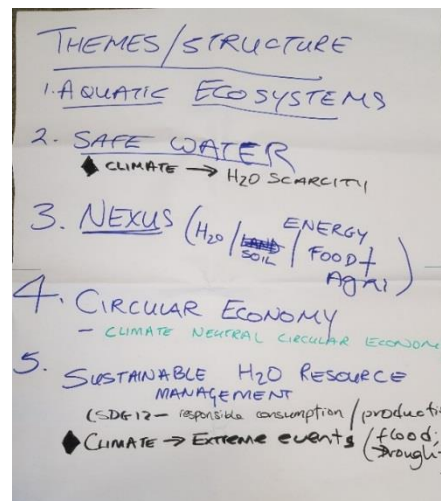 THEMES/STRUCTURE
1. AQUATIC ECOSYSTEMS
2. SAFE WATER
◆ CLIMATE → H2O SCARCITY
3. NEXUS (H2O / SOIL / ENERGY
FOOD +
Agri)
4. CIRCULAR ECONOMY
- CLIMATE NEUTRAL CIRCULAR ECONOM
5. SUSTAINABLE H2O RESOURCE
MANAGEMENT
(SDG12 - responsible consumption / producti
◆ CLIMATE → Extreme events (flood;
Drought